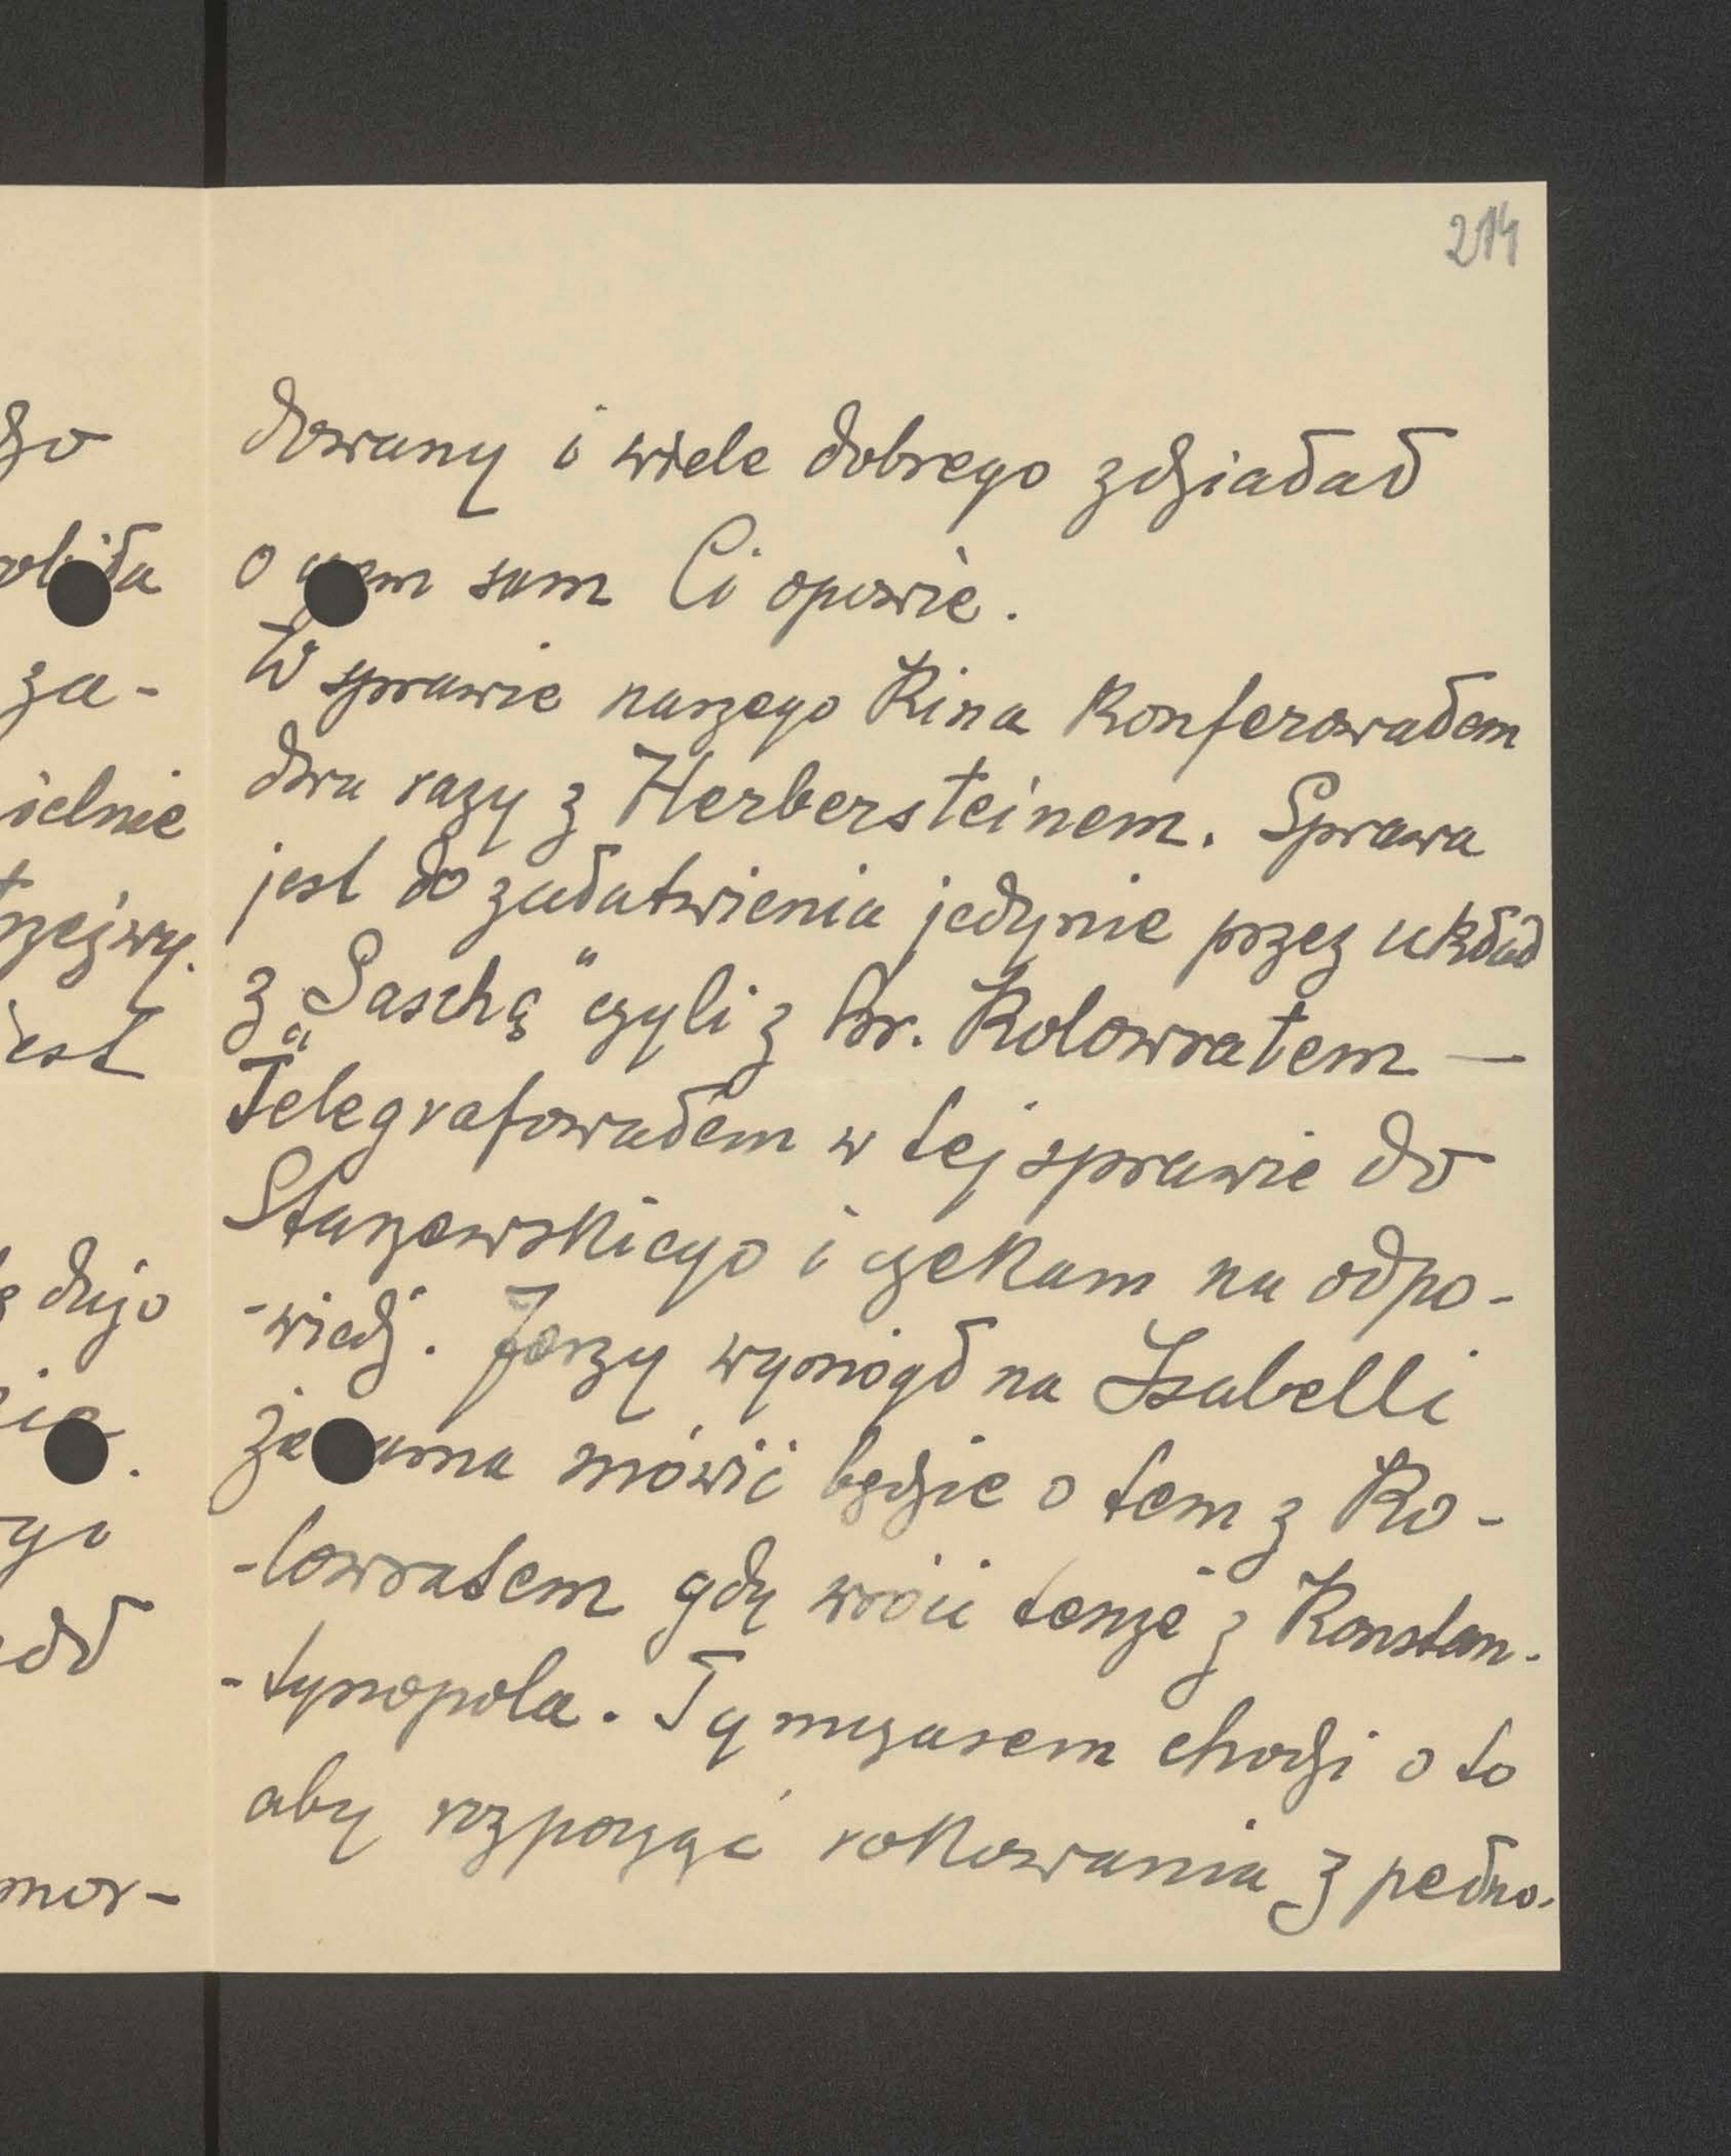 214
dowany i wiele dobrego zdziałał
o czem sam Ci opowie.
W sprawie naszego Kina Konferowałem
dwa razy z Herbersteinem. Sprawa
jest do załatwienia jedynie przez układ
z „Saschą" czyli z hr. Kolowratem —
Telegrafowałem w tej sprawie do
Starzewskiego i czekam na odpo-
-wiedź. Jerzy wymógł na Isabelli
że sama mówić będzie o tem z Ko-
-lowratem gdy wróci tenże z Konstan-
-tynopola. Tymczasem chodzi o to
aby rozpocząć rokowania z pełno-
go
za-
ielnie
rzeźwy.
jest
dujo
go
mor-